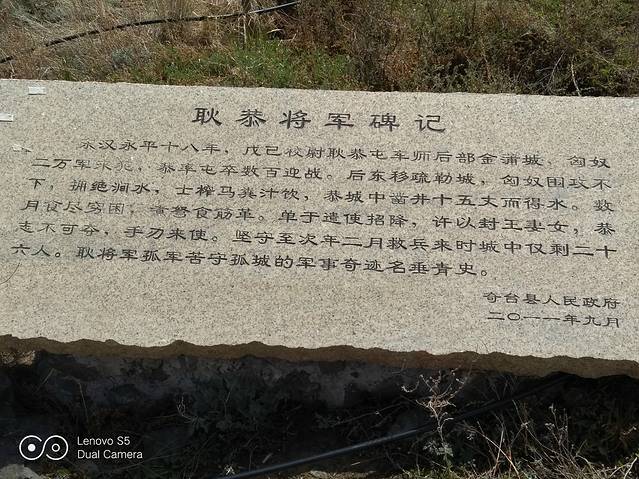 耿恭将军碑记
东汉永平十八年，戊已校尉耿恭屯车师后部金蒲城，匈奴
二万军来犯，恭率屯卒数百迎战。后东移疏勒城，匈奴围攻不
下，拥绝涧水，士榨马粪汁饮，恭城中凿井十五丈而得水。数
月食尽穷困，煮弩食筋革。单于遣使招降，许以封王妻女，恭
志不可夺，手刃来使。坚守至次年二月救兵来时城中仅剩二十
六人。耿将军孤军苦守孤城的军事奇迹名垂青史。
奇台县人民政府
二〇一一年九月
Lenovo S5
Dual Camera